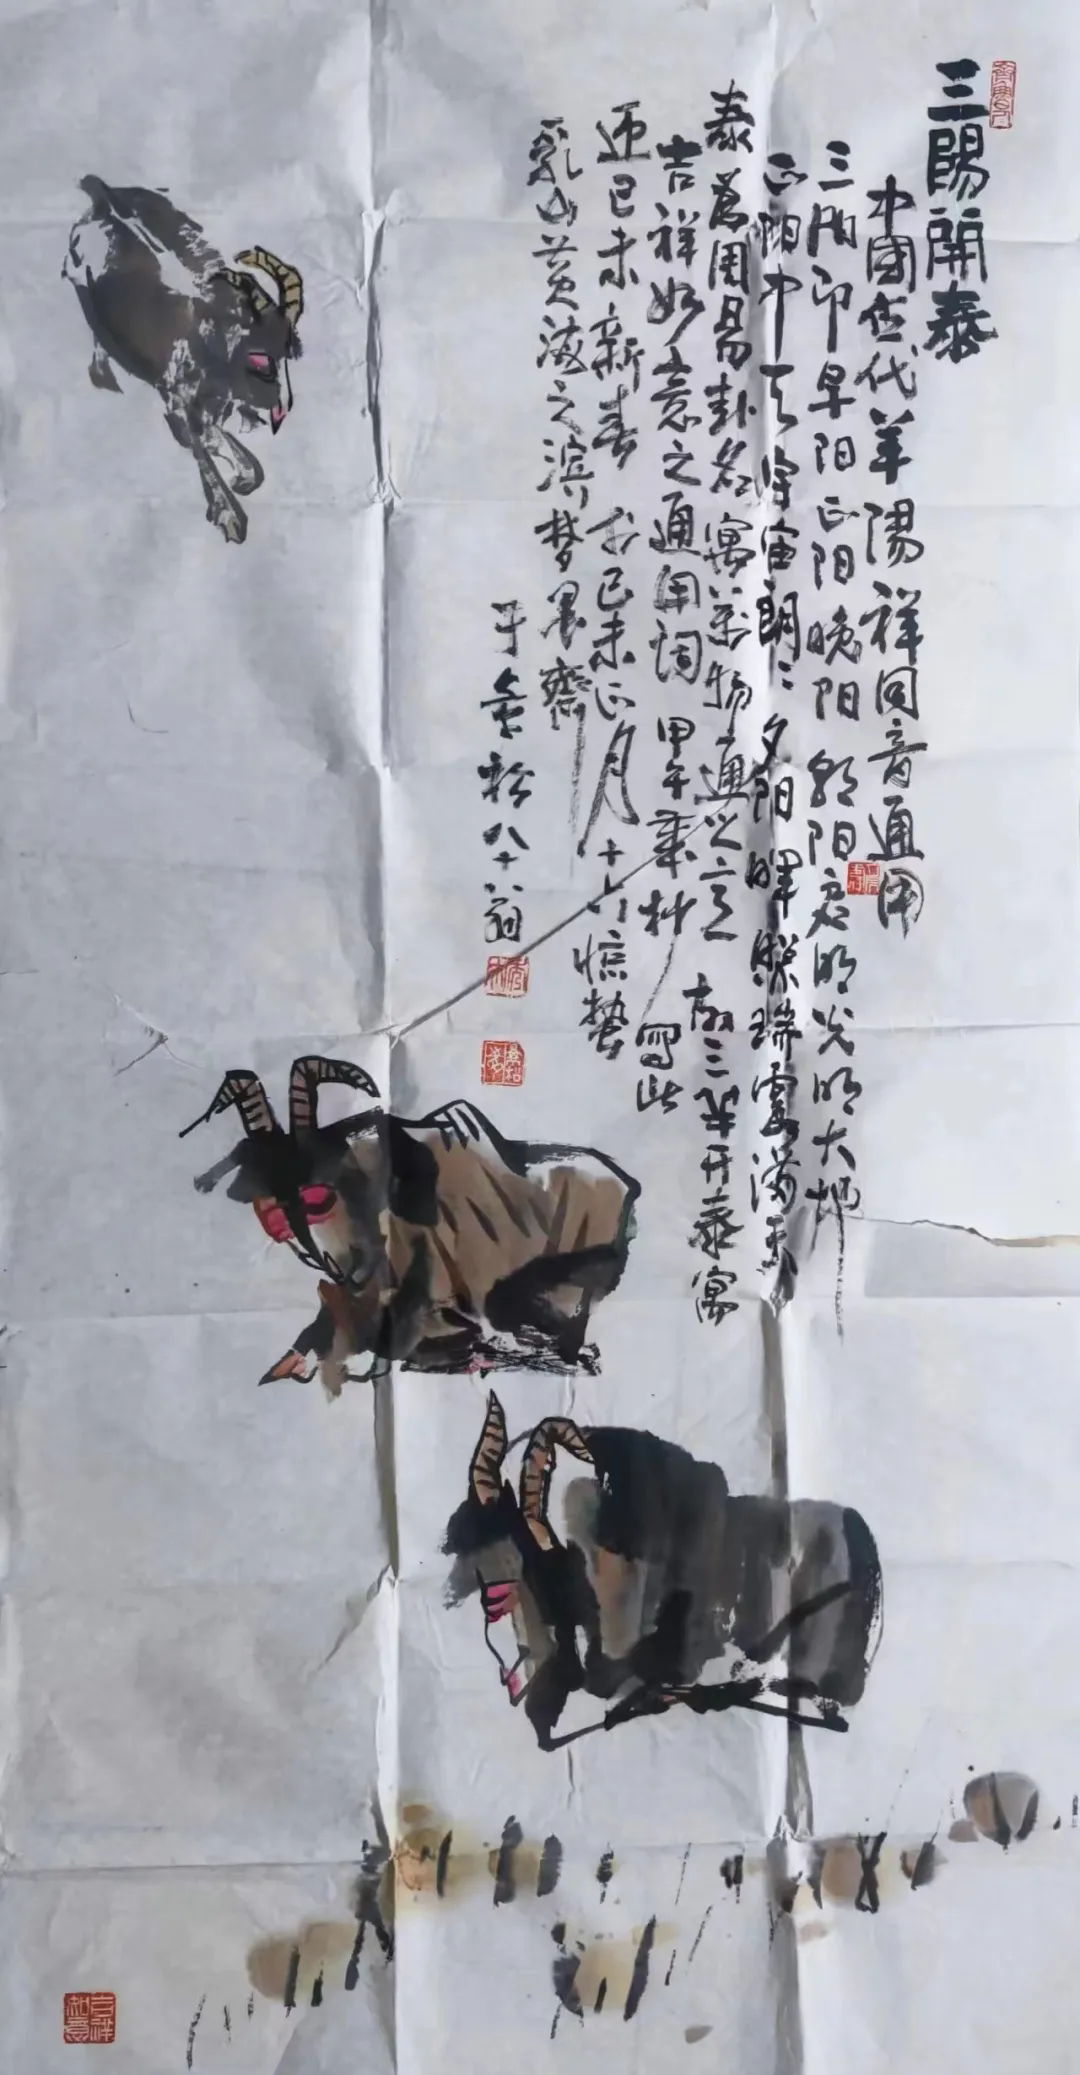 三陽開泰
中國古代羊陽祥同音通用
三陽即早阳正阳晚阳 朝阳启明光明大地
正阳中天宇宙朗〻夕阳暉照瑞雲满天
泰为周易卦名寓万物通之意 故三羊开泰寓
吉祥如意之通用词 甲午季秋 写此
迎己未新春 于己未正月十六惊蛰
乳山黄海之滨梦墨齋
八十八翁
吉祥如意